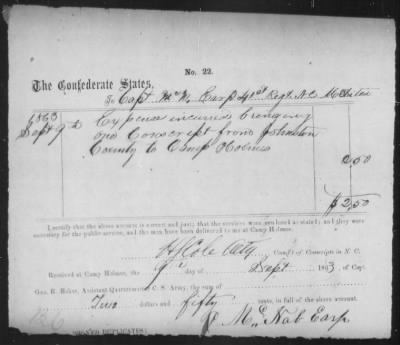 No. 22.
The Confederate States,
To Capt McN. Earp 41st Regt. N.C. Militia
1863
Sept 9th Expense incurred bringing
one Conscript from Johnston
County to Camp Holmes 2.50
$2.50
I certify that the above account is correct and just; that the services were rendered as stated; and they were
necessary for the public service, and the men have been delivered to me at Camp Holmes.
Com'd't of Conscripts in N. C.
Received at Camp Holmes, the 9th day of Sept 1863, of Capt.
Geo. B. Baker, Assistant Quartermaster C. S. Army, the sum of
Two dollars and fifty cents, in full of the above account.
McNab Earp
[SIGNED DUPLICATES.]